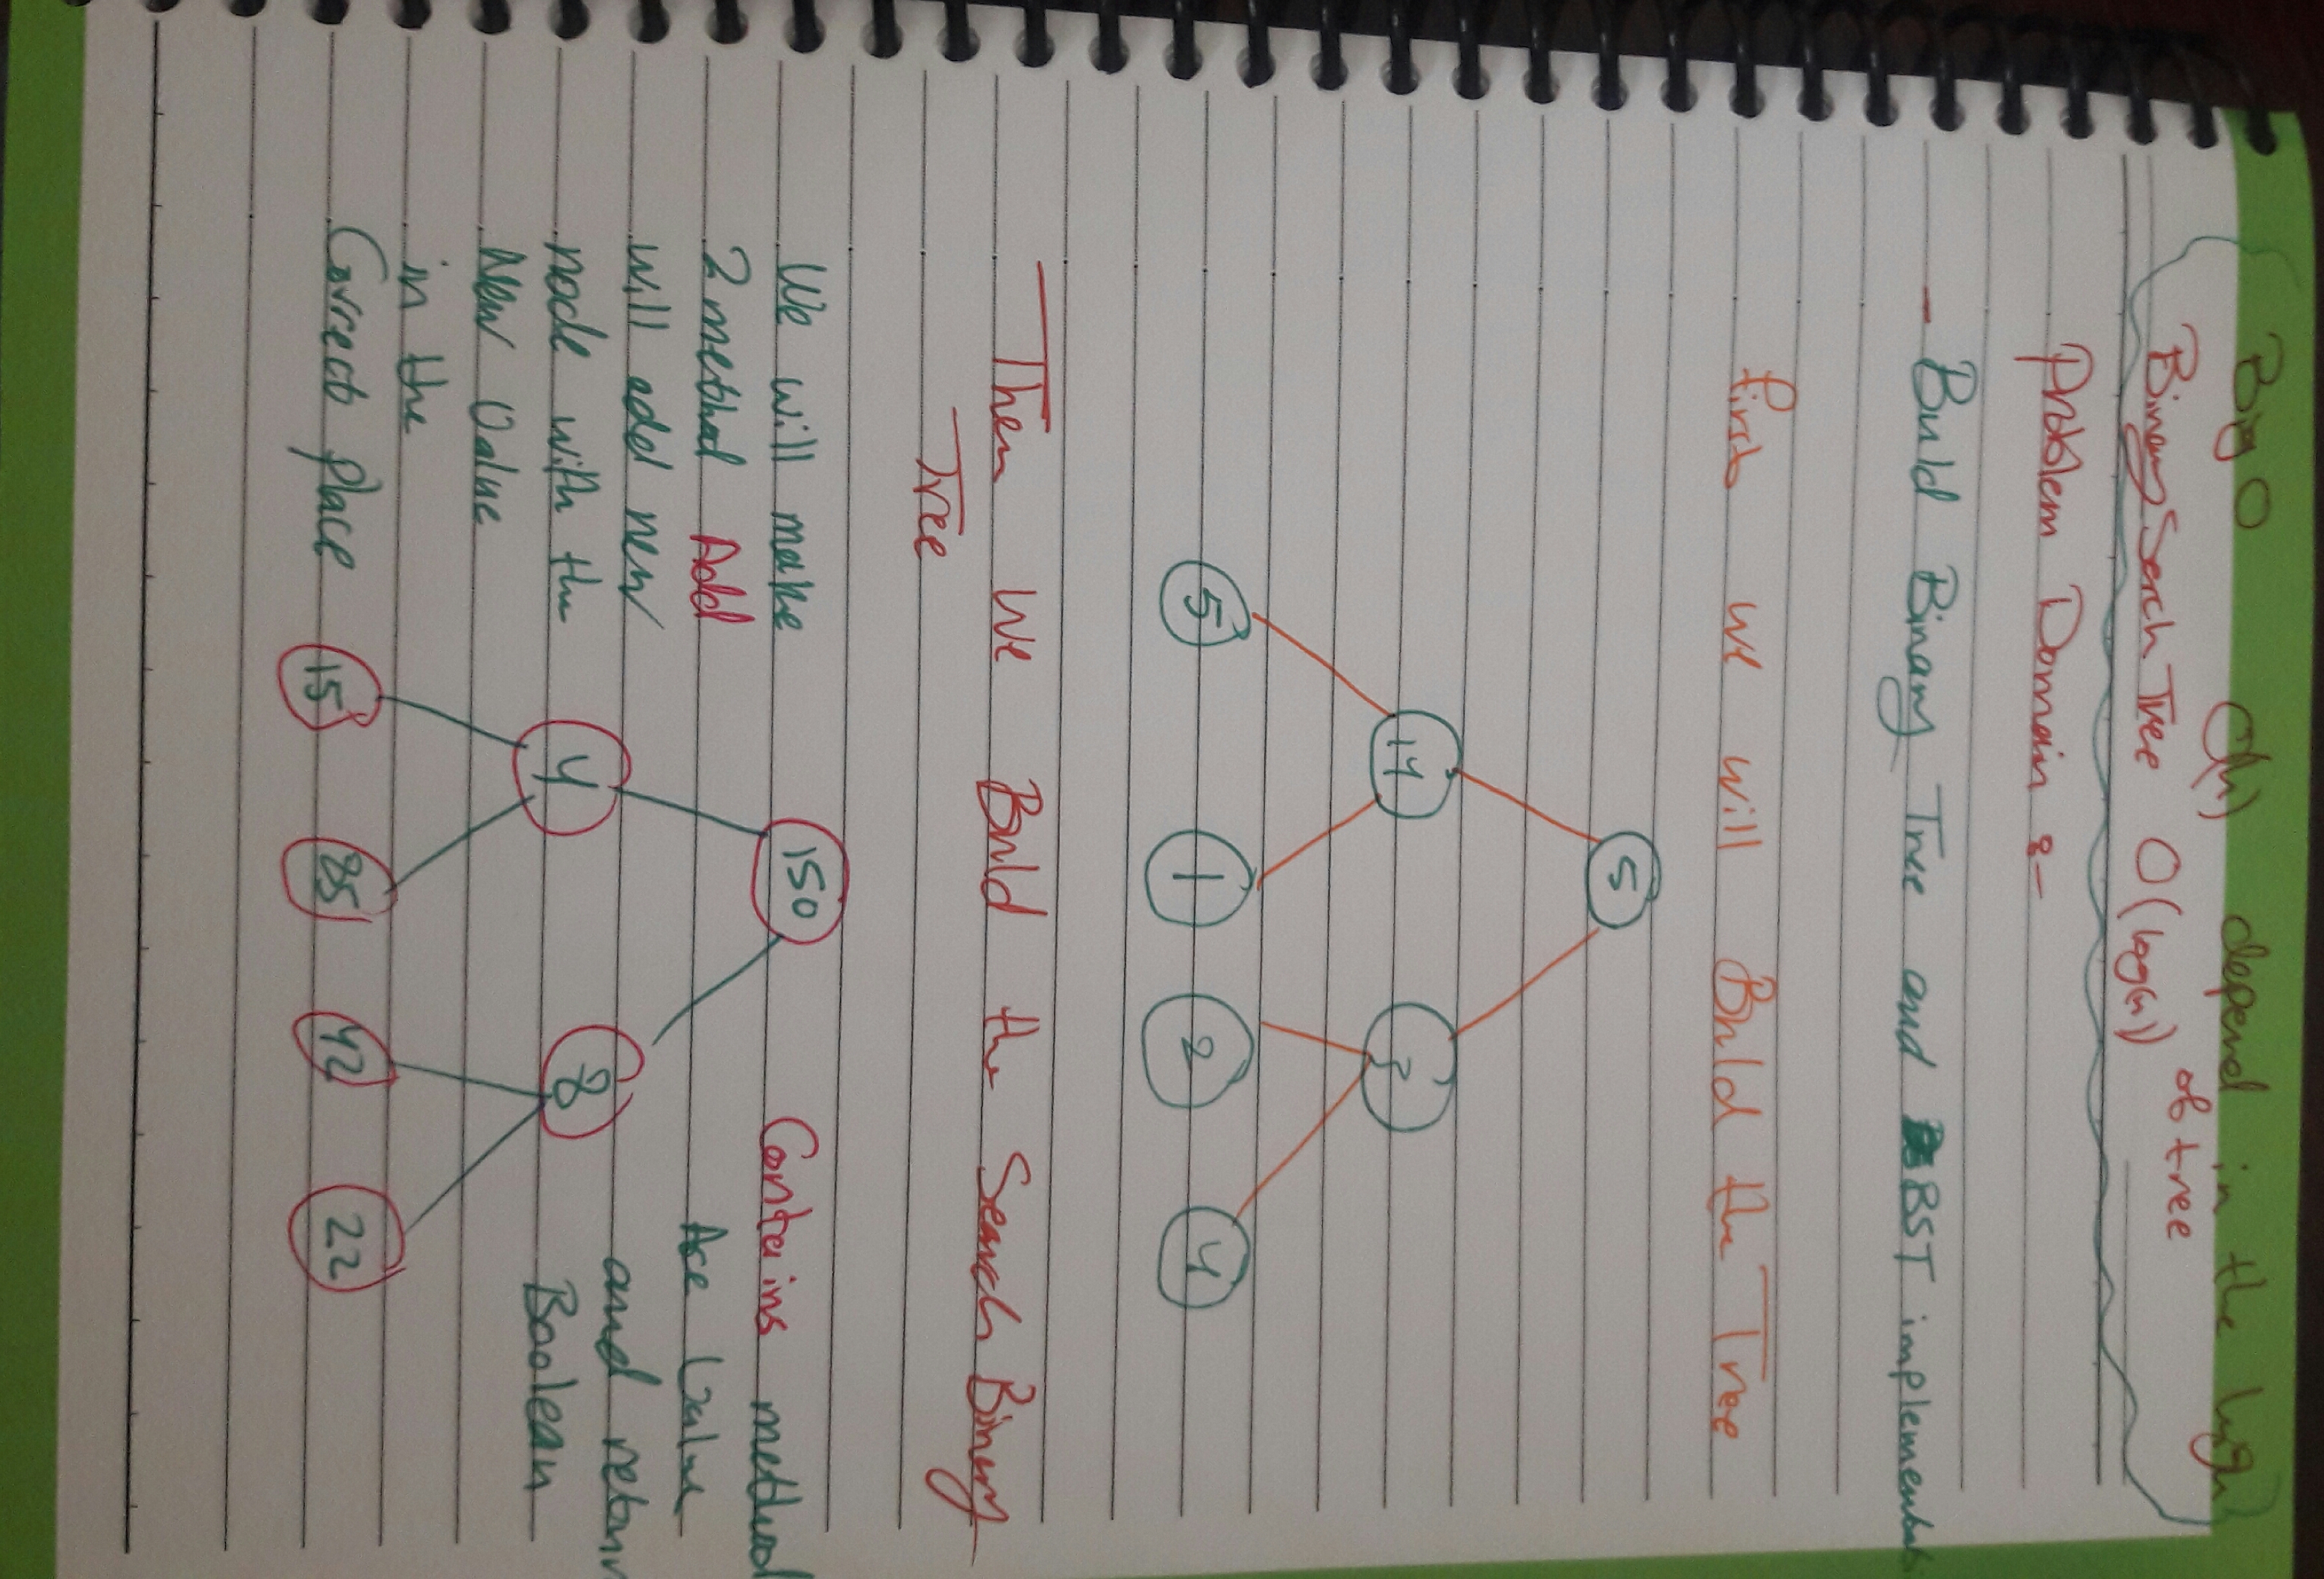 Big O O(h) depend in the high
Binary Serch Tree O(log(n)) of tree
Problem Domain :-
- Build Binary Tree and BST implementat
first we will Build the Tree
5
14
5 1 2 4
Then We Build the Search Binary
Tree
We will make
2 method Add
will add new
node with the
New Value
in the
Correct place
Contains method
Value
and return
Boolean
150
4 8
15 85 42 22